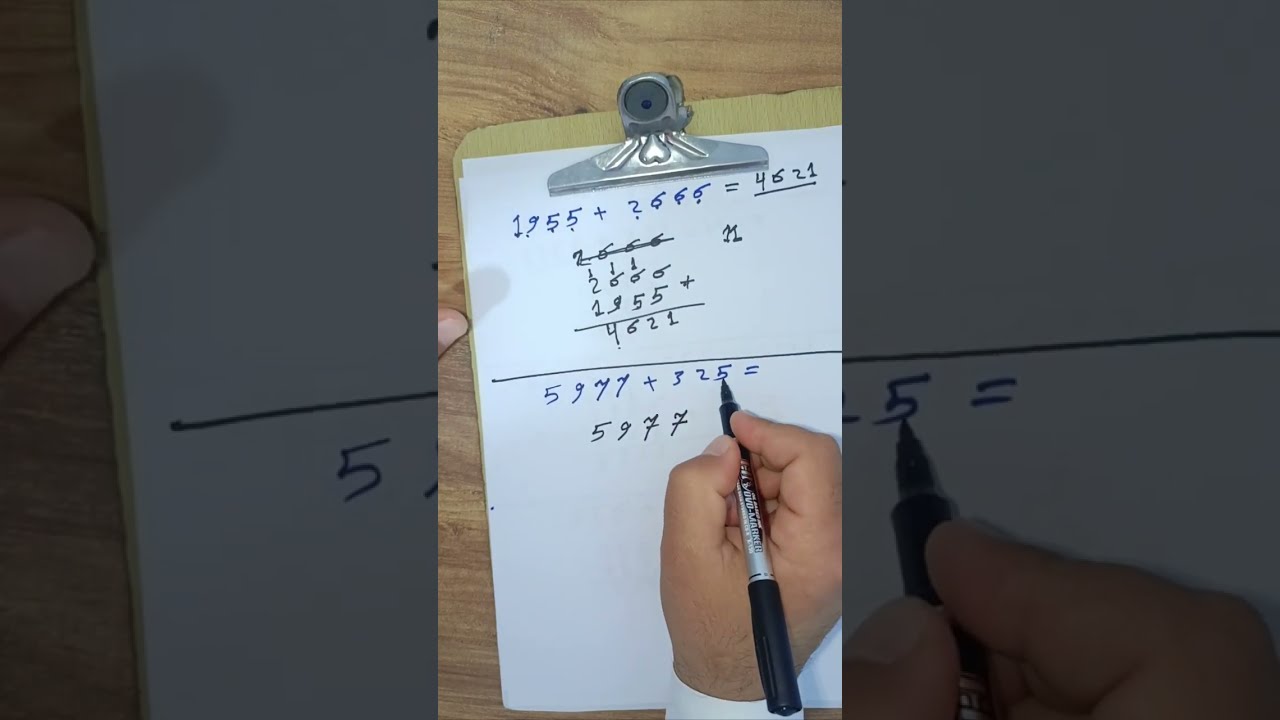 1955 + 2666 = 4621
2666
11
1 1 1
2666
1955 +
4621
5977 + 325 =
5977